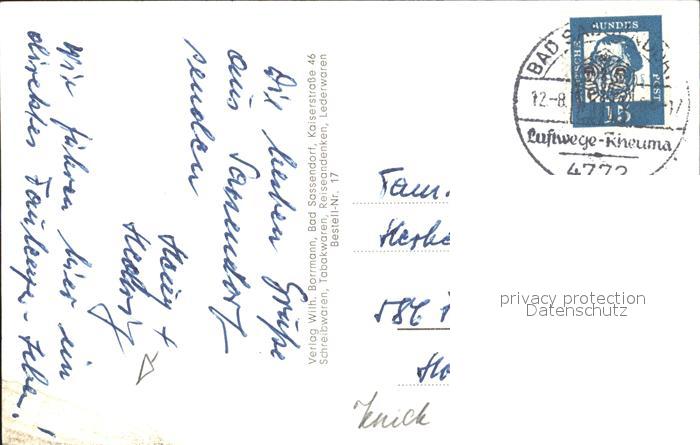 Die lieben Grüße
aus Sassendorf
senden
Heinz +
Hedwig
Wir führen hier ein
direktes Faulenzer-Leben!
Verlag Wilh. Borrmann, Bad Sassendorf, Kaiserstraße 46
Schreibwaren, Tabakwaren, Reiseandenken, Lederwaren
Bestell-Nr. 17
BUNDES
POST
15
BAD SASSENDORF
12.-8.
Luftwege-Rheuma
4772
Fam.
Herbe
586
Knick
privacy protection
Datenschutz